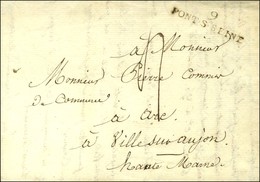 9
PONT-S-SEINE
à Monsieur
Monsieur Pierre Commer
de Commune
à arc
à Ville sur aujon
haute Marne